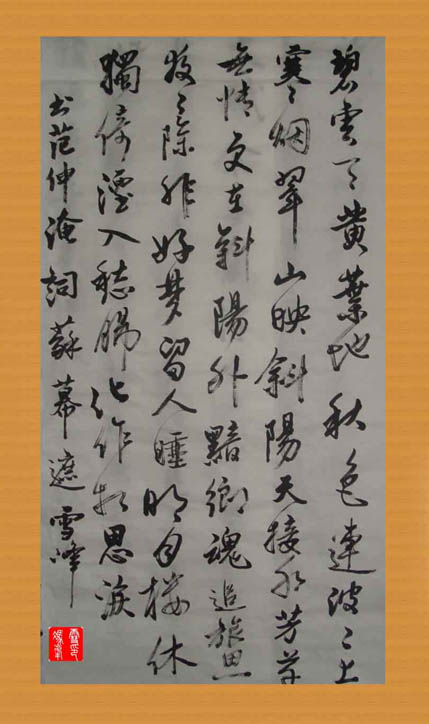 碧雲天黃葉地秋色連波〻上
寒〻烟翠山映斜陽天接水芳草
無情更在斜陽外黯鄉魂追旅思
夜〻除非好夢留人睡明月樓休
獨倚酒入愁腸化作相思淚
书范仲淹詞蘇幕遮雪峰